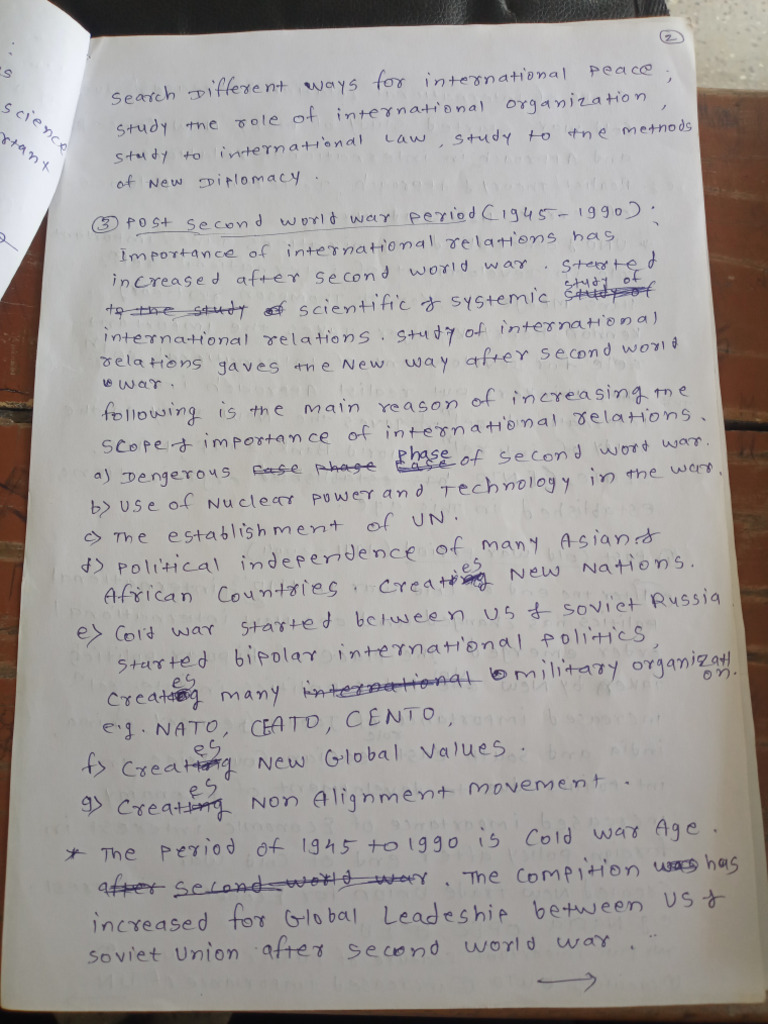 s
science
rtant
2
search Different ways for international peace;
study the role of international organization,
study to international Law, study to the methods
of New Diplomacy.
3 Post Second World War Period (1945-1990):
Importance of international relations has
increased after second world war. Started
to the study of scientific & systemic study of study of
international relations. Study of international
relations gaves the New way after second world
war.
following is the main reason of increasing the
scope & importance of international relations.
a) Dengerous Case phase phase Case of second word war.
b) Use of Nuclear power and Technology in the war.
c) The establishment of UN.
d) Political independence of many Asian &
African Countries. Creates New Nations.
e) Cold war started between US & Soviet Russia.
started bipolar international politics,
Creates many international military organization.
e.g. NATO, CEATO, CENTO,
f) Creates New Global Values.
g) Creates Non Alignment movement.
* The period of 1945 to 1990 is Cold War Age.
after second world war. The compition was has
increased for Global Leadeship between US &
Soviet Union after second world war.
→